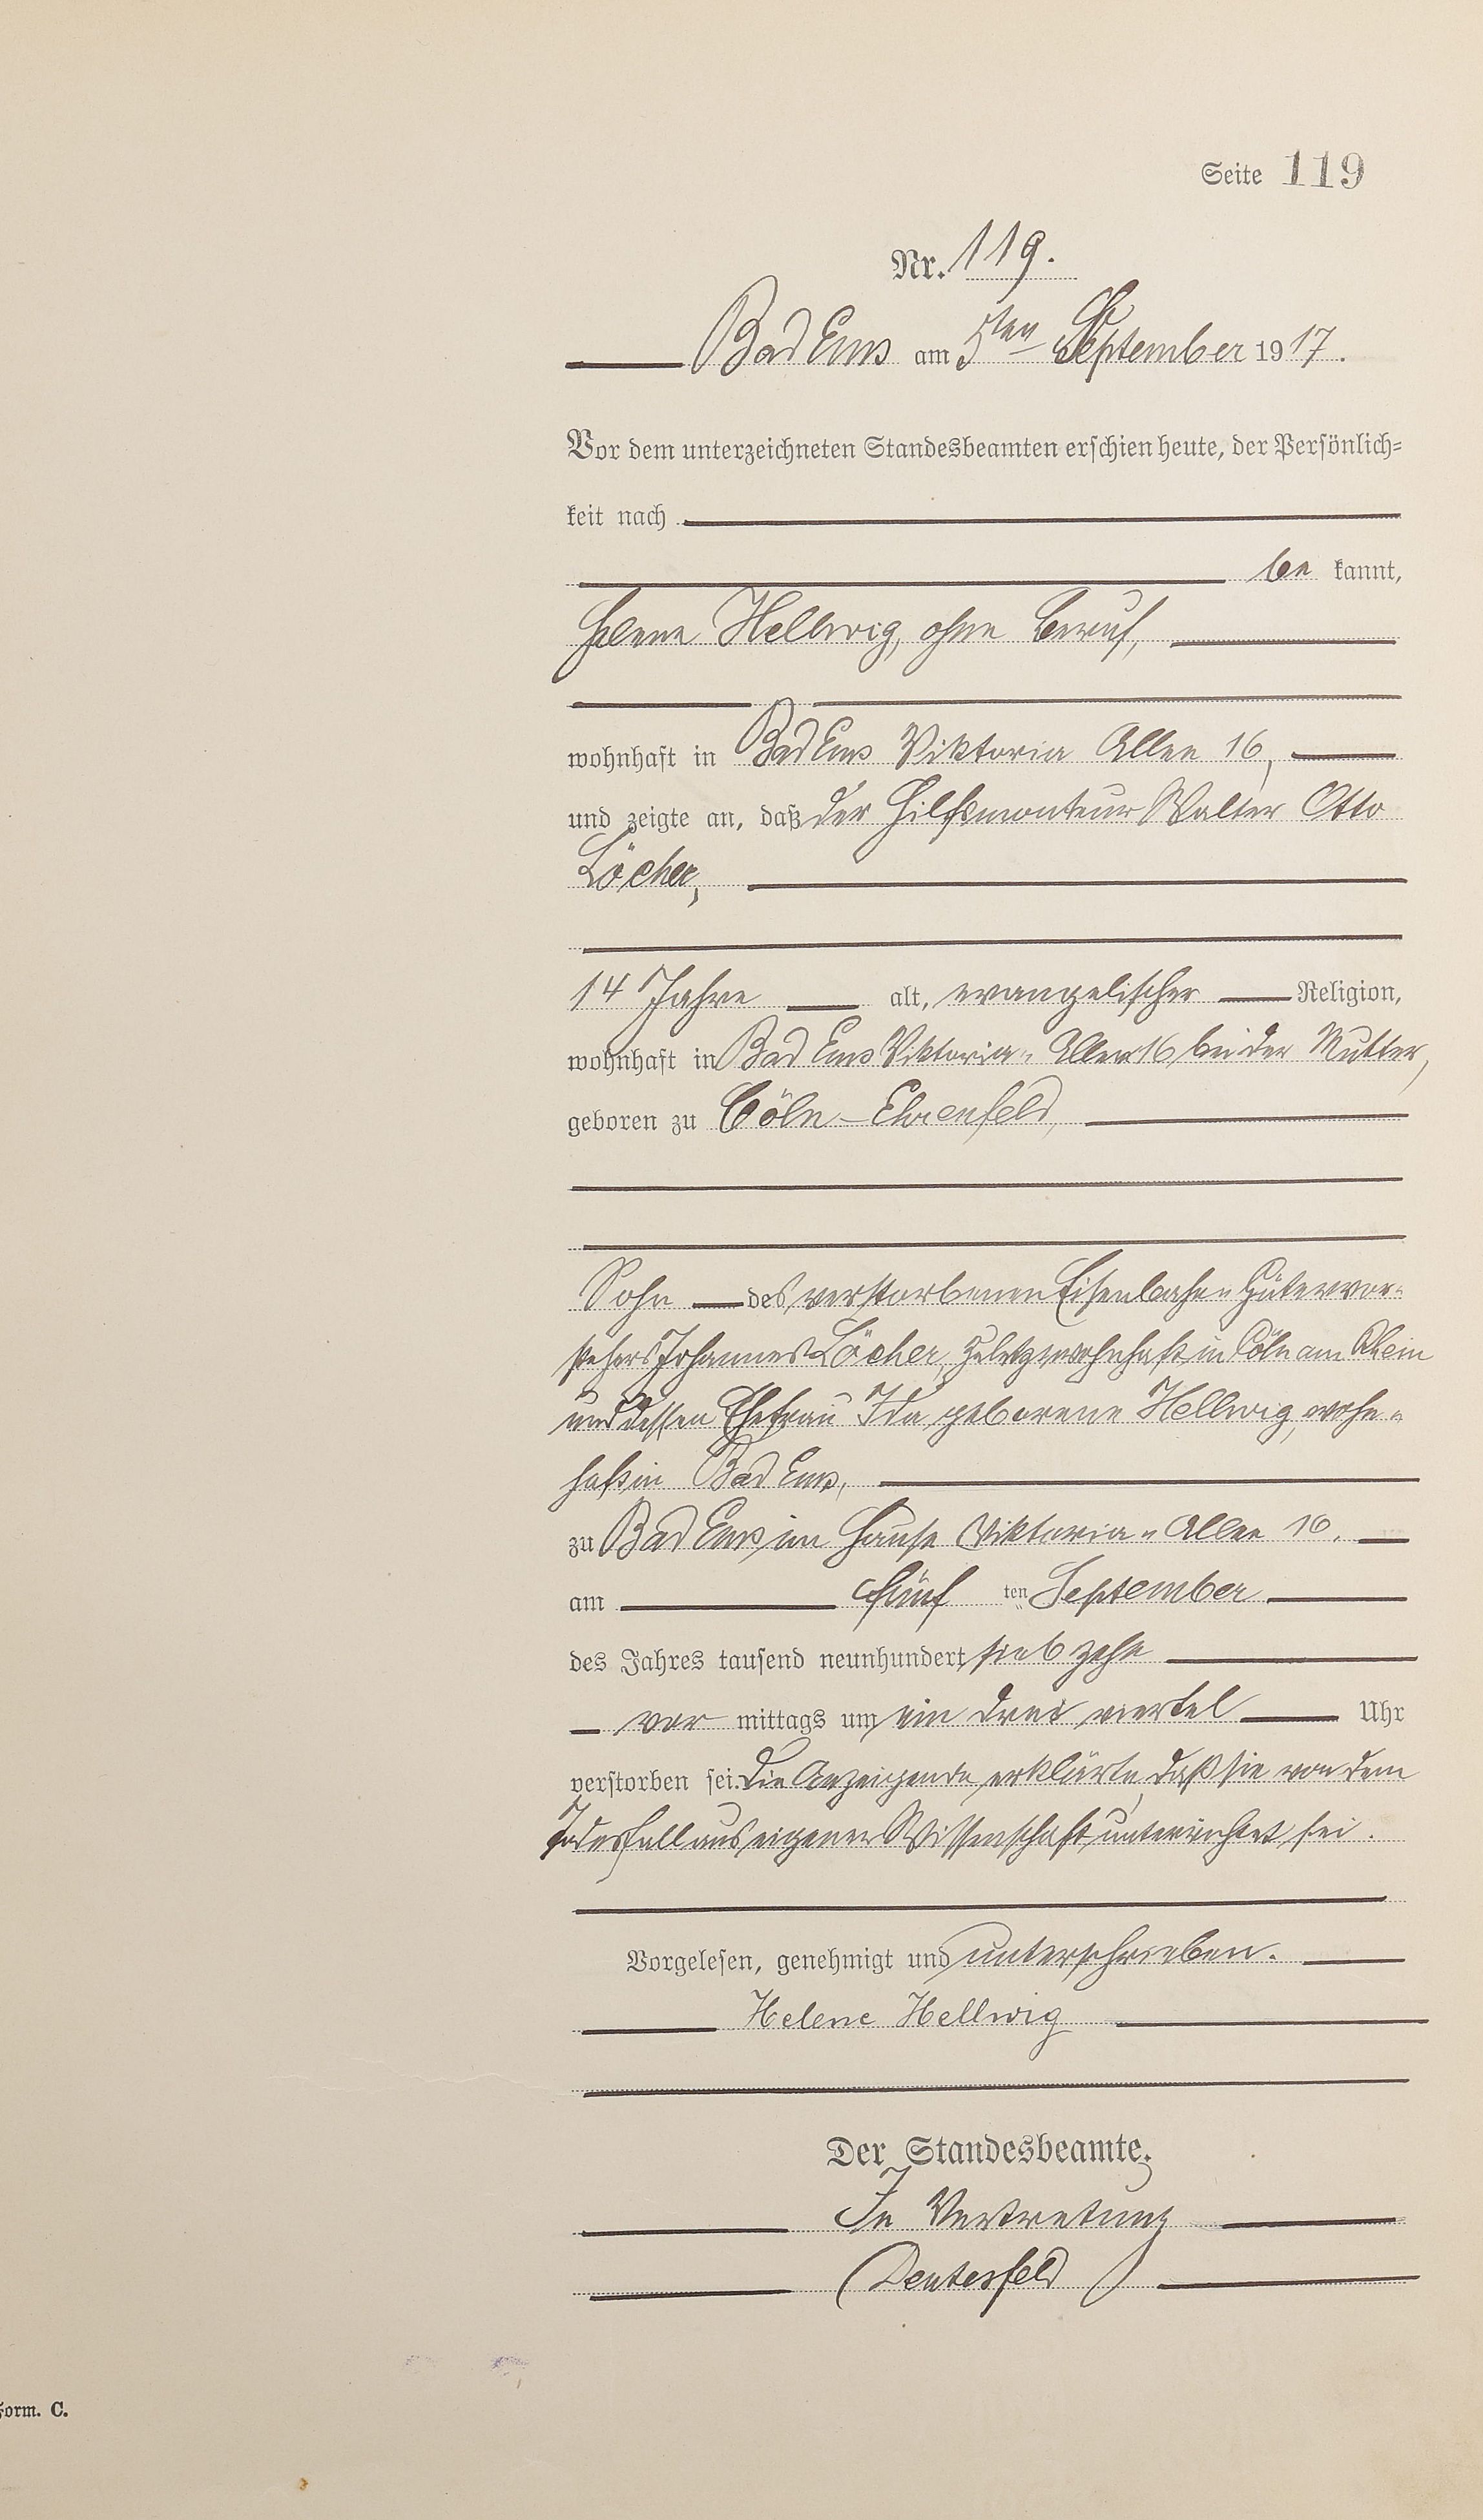 Seite 119
Nr. 119.
Bad Ems am 5ten September 1917.
Vor dem unterzeichneten Standesbeamten erschien heute, der Persönlich-
keit nach
be kannt,
Helene Hellwig, ohne Beruf,
wohnhaft in Bad Ems Viktoria Allee 16,
und zeigte an, daß der Hilfsmonteur Walter Otto
Löcher,
14 Jahre alt, evangelischer Religion,
wohnhaft in Bad Ems Viktoria-Allee 16, bei der Mutter,
geboren zu Cöln-Ehrenfeld,
Sohn des verstorbenen Eisenbahn-Gütervor-
stehers Johannes Löcher, zuletzt wohnhaft in Cöln am Rhein
und dessen Ehefrau Ida geborene Hellwig, wohn-
haft in Bad Ems,
zu Bad Ems im Hause Viktoria-Allee 16,
am fünf ten September
des Jahres tausend neunhundert siebzehn
vor mittags um ein drei viertel Uhr
verstorben sei. Die Anzeigende erklärte, daß sie von dem
Todesfall aus eigener Wissenschaft unterrichtet sei.
Vorgelesen, genehmigt und unterschrieben.
Helene Hellwig
Der Standesbeamte.
In Vertretung
Form. C.